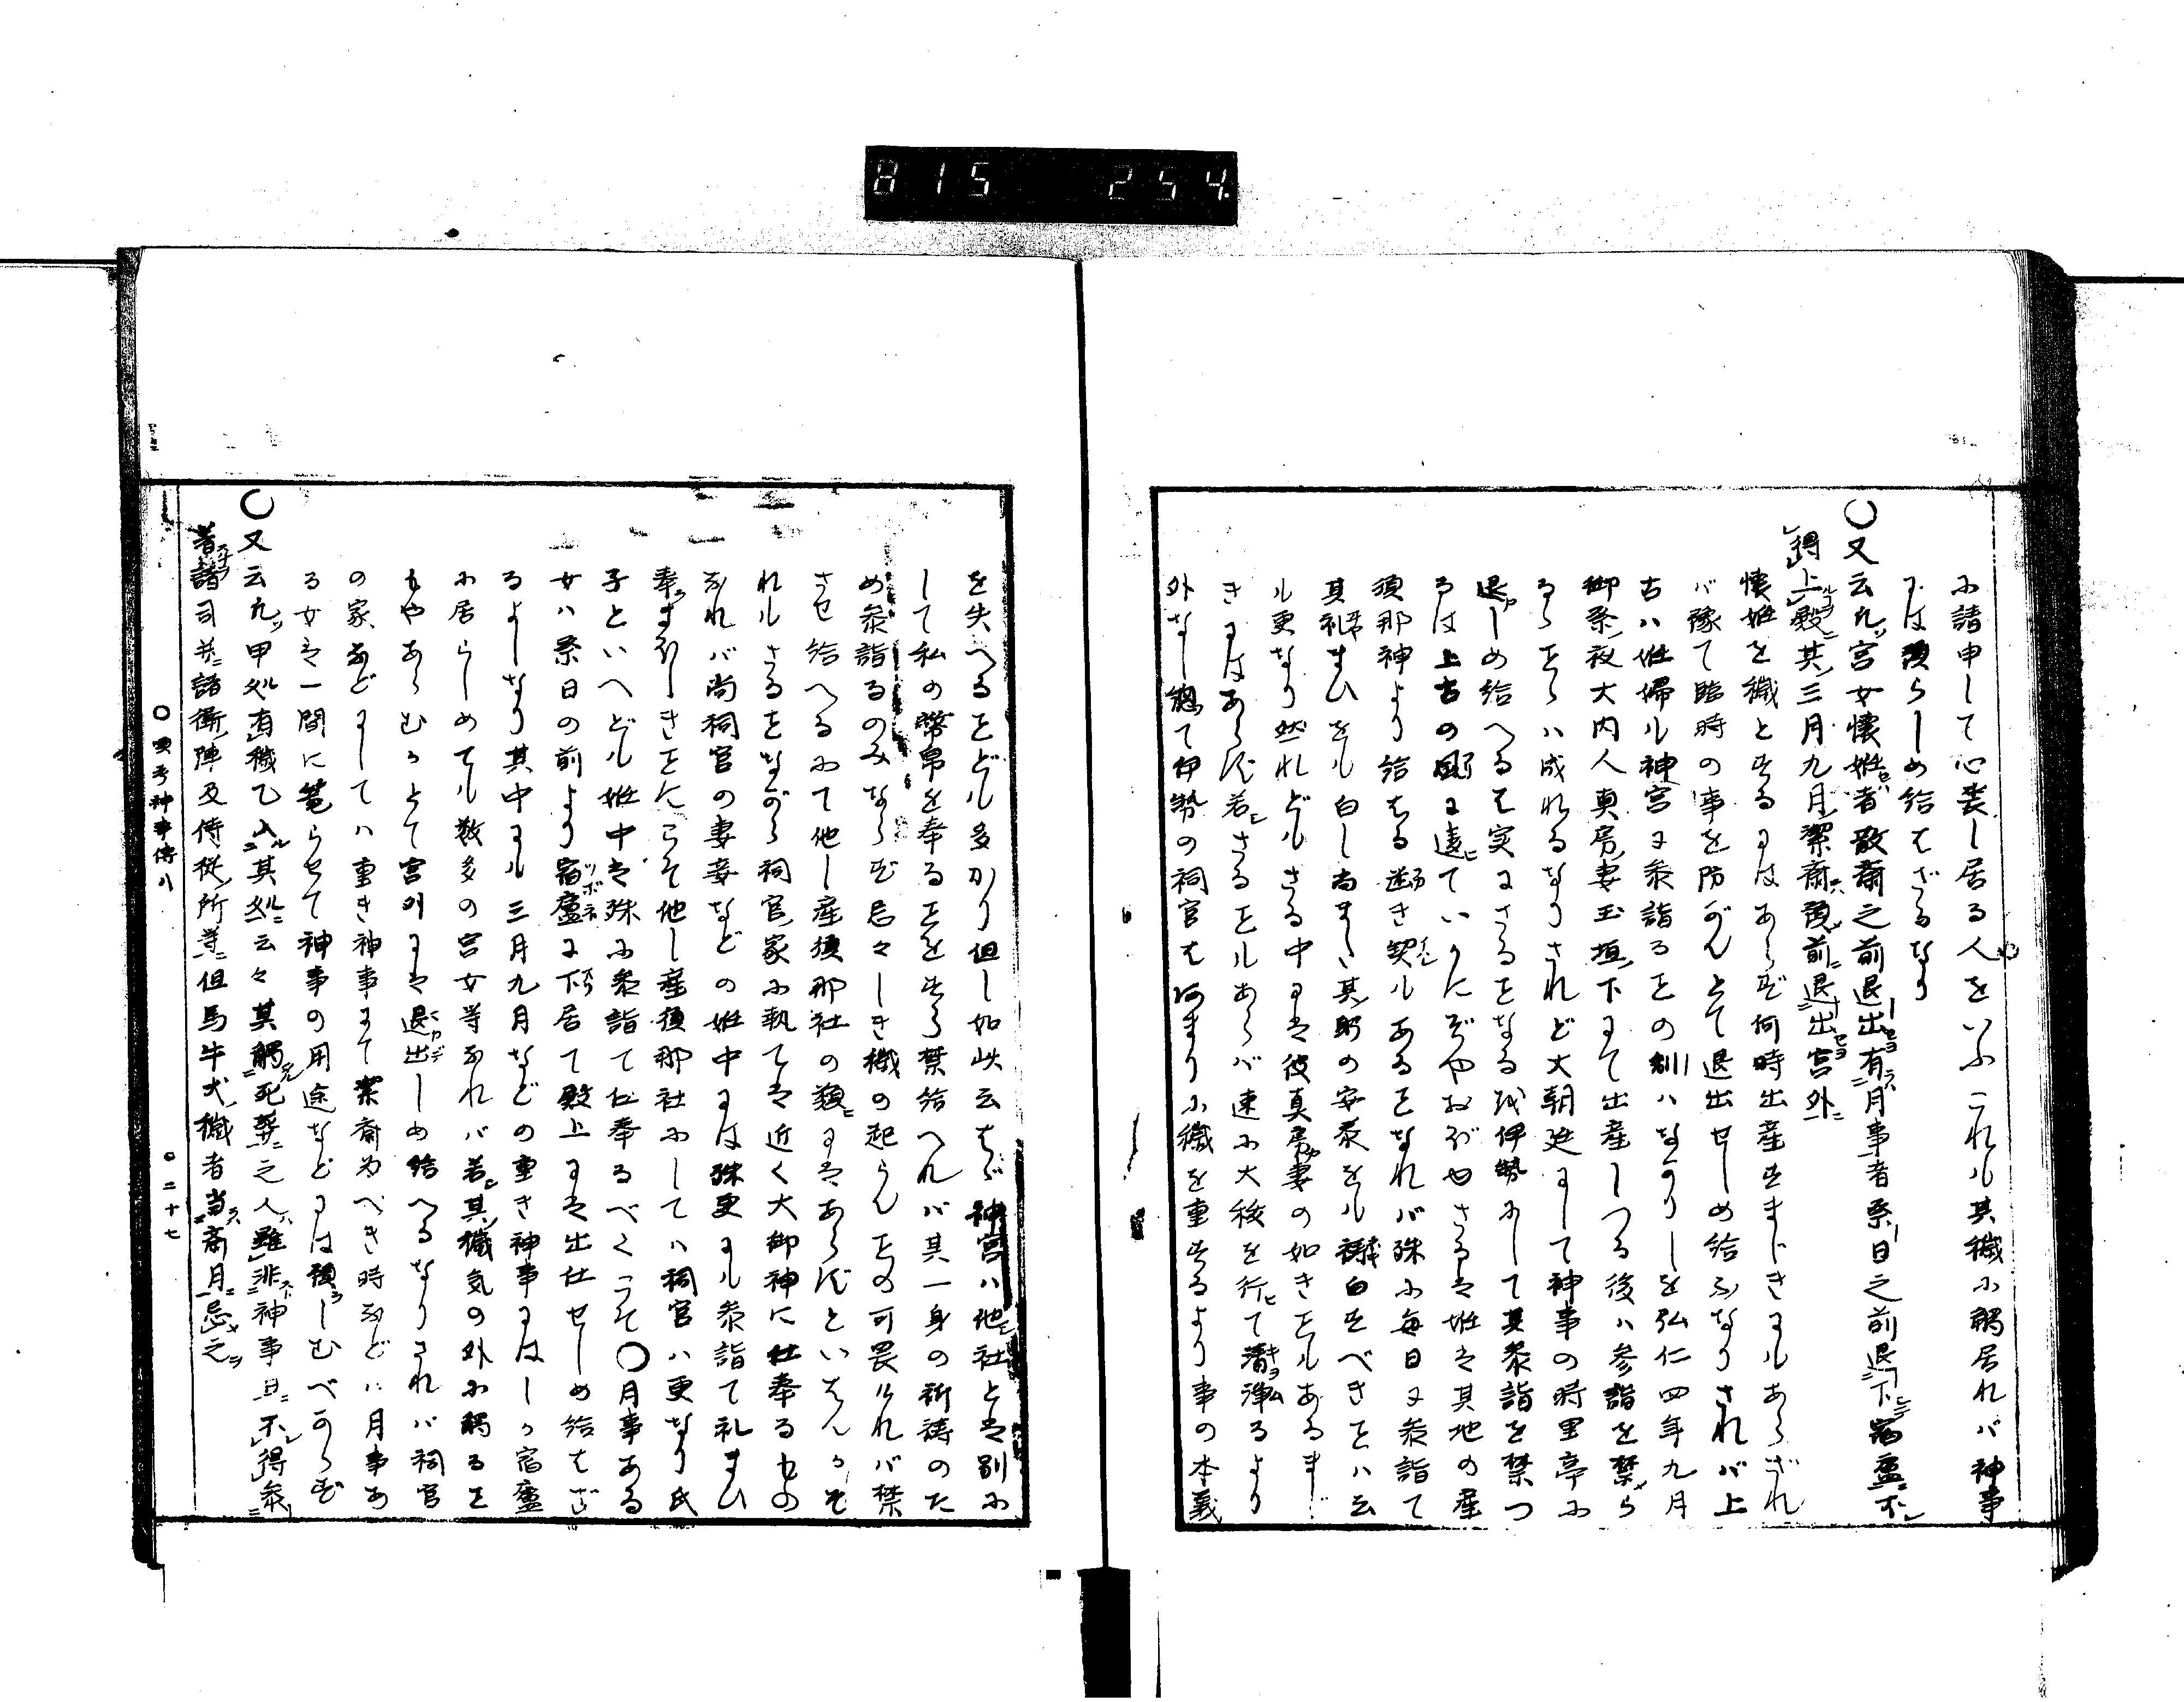 815 254
に請申して心喪し居る人をいふこれも其穢に觸居れバ神事
には預らしめ給はざるなり
○又云凡宮女懐妊者散齋之前退出有月事者祭日之前退下宿廬不
得上殿其三月九月潔齋預前退出宮外
懐妊を穢とするにはあらず何時出産すまじきにもあらざれ
バ豫て臨時の事を防がんとて退出せしめ給ふなりされバ上
古ハ妊婦も神宮に参詣るをの制ハなかりしを弘仁四年九月
御祭夜大内人真房妻玉垣下にて出産しつる後ハ参詣を禁ら
るゝをらハ成れるなりされど大朝廷にして神事の時里亭に
退しめ給へるを実にさるをなる我伊勢にして其参詣を禁つ
るは上古の風に遠ていかにぞやおぼゆさるは妊は其地の産
須那神より給はる遂き契もあるをなれバ殊に毎日に参詣て
其礼まひをも白し尚また其躬の安泰をも禱白すべきをハ云
も更なり然れどもさる中には彼真房妻の如きをもあるまじ
きにはあらず若さるをもあらバ速に大秡を行て清浄るより
外なし總て伊勢の祠官はあまりに穢を重するより事の本義
を失へるをども多かり但し如此云はゞ神宮ハ他社とは別に
して私の幣帛を奉るをを禁給へれバ其一身の祈祷のた
め参詣るのみならず忌々しき穢の起らんをの可畏けれバ禁
させ給へるにて他し産須那社の類にはあらずといはんかそ
れもさるをながら祠官家に執ては近く大御神に仕奉るもの
なれバ尚祠官の妻妾などの妊中には殊更にも参詣て礼まひ
奉まほしきをにこそ他し産須那社にしてハ祠官ハ更なり氏
子といへども妊中は殊に参詣て仕奉るべくこそ○月事ある
女ハ祭日の前より宿廬に下居て殿上には出仕せしめ給はざ
るよしなり其中にも三月九月などの重き神事にはしか宿廬
に居らしめても数多の宮女等なれバ若其穢気の外に觸るを
もやあらむかとて宮外には退出しめ給へるなりされバ祠官
の家などにしてハ重き神事にて潔齋為べき時などハ月事あ
る女は一間に篭らせて神事の用途などには預しむべからず
○又云凡甲処有穢乙入其処云々其觸死葬之人雖非神事日不得参
著諸司并諸衛陣及侍従所等但馬牛犬穢者当齋月忌之
○二十七